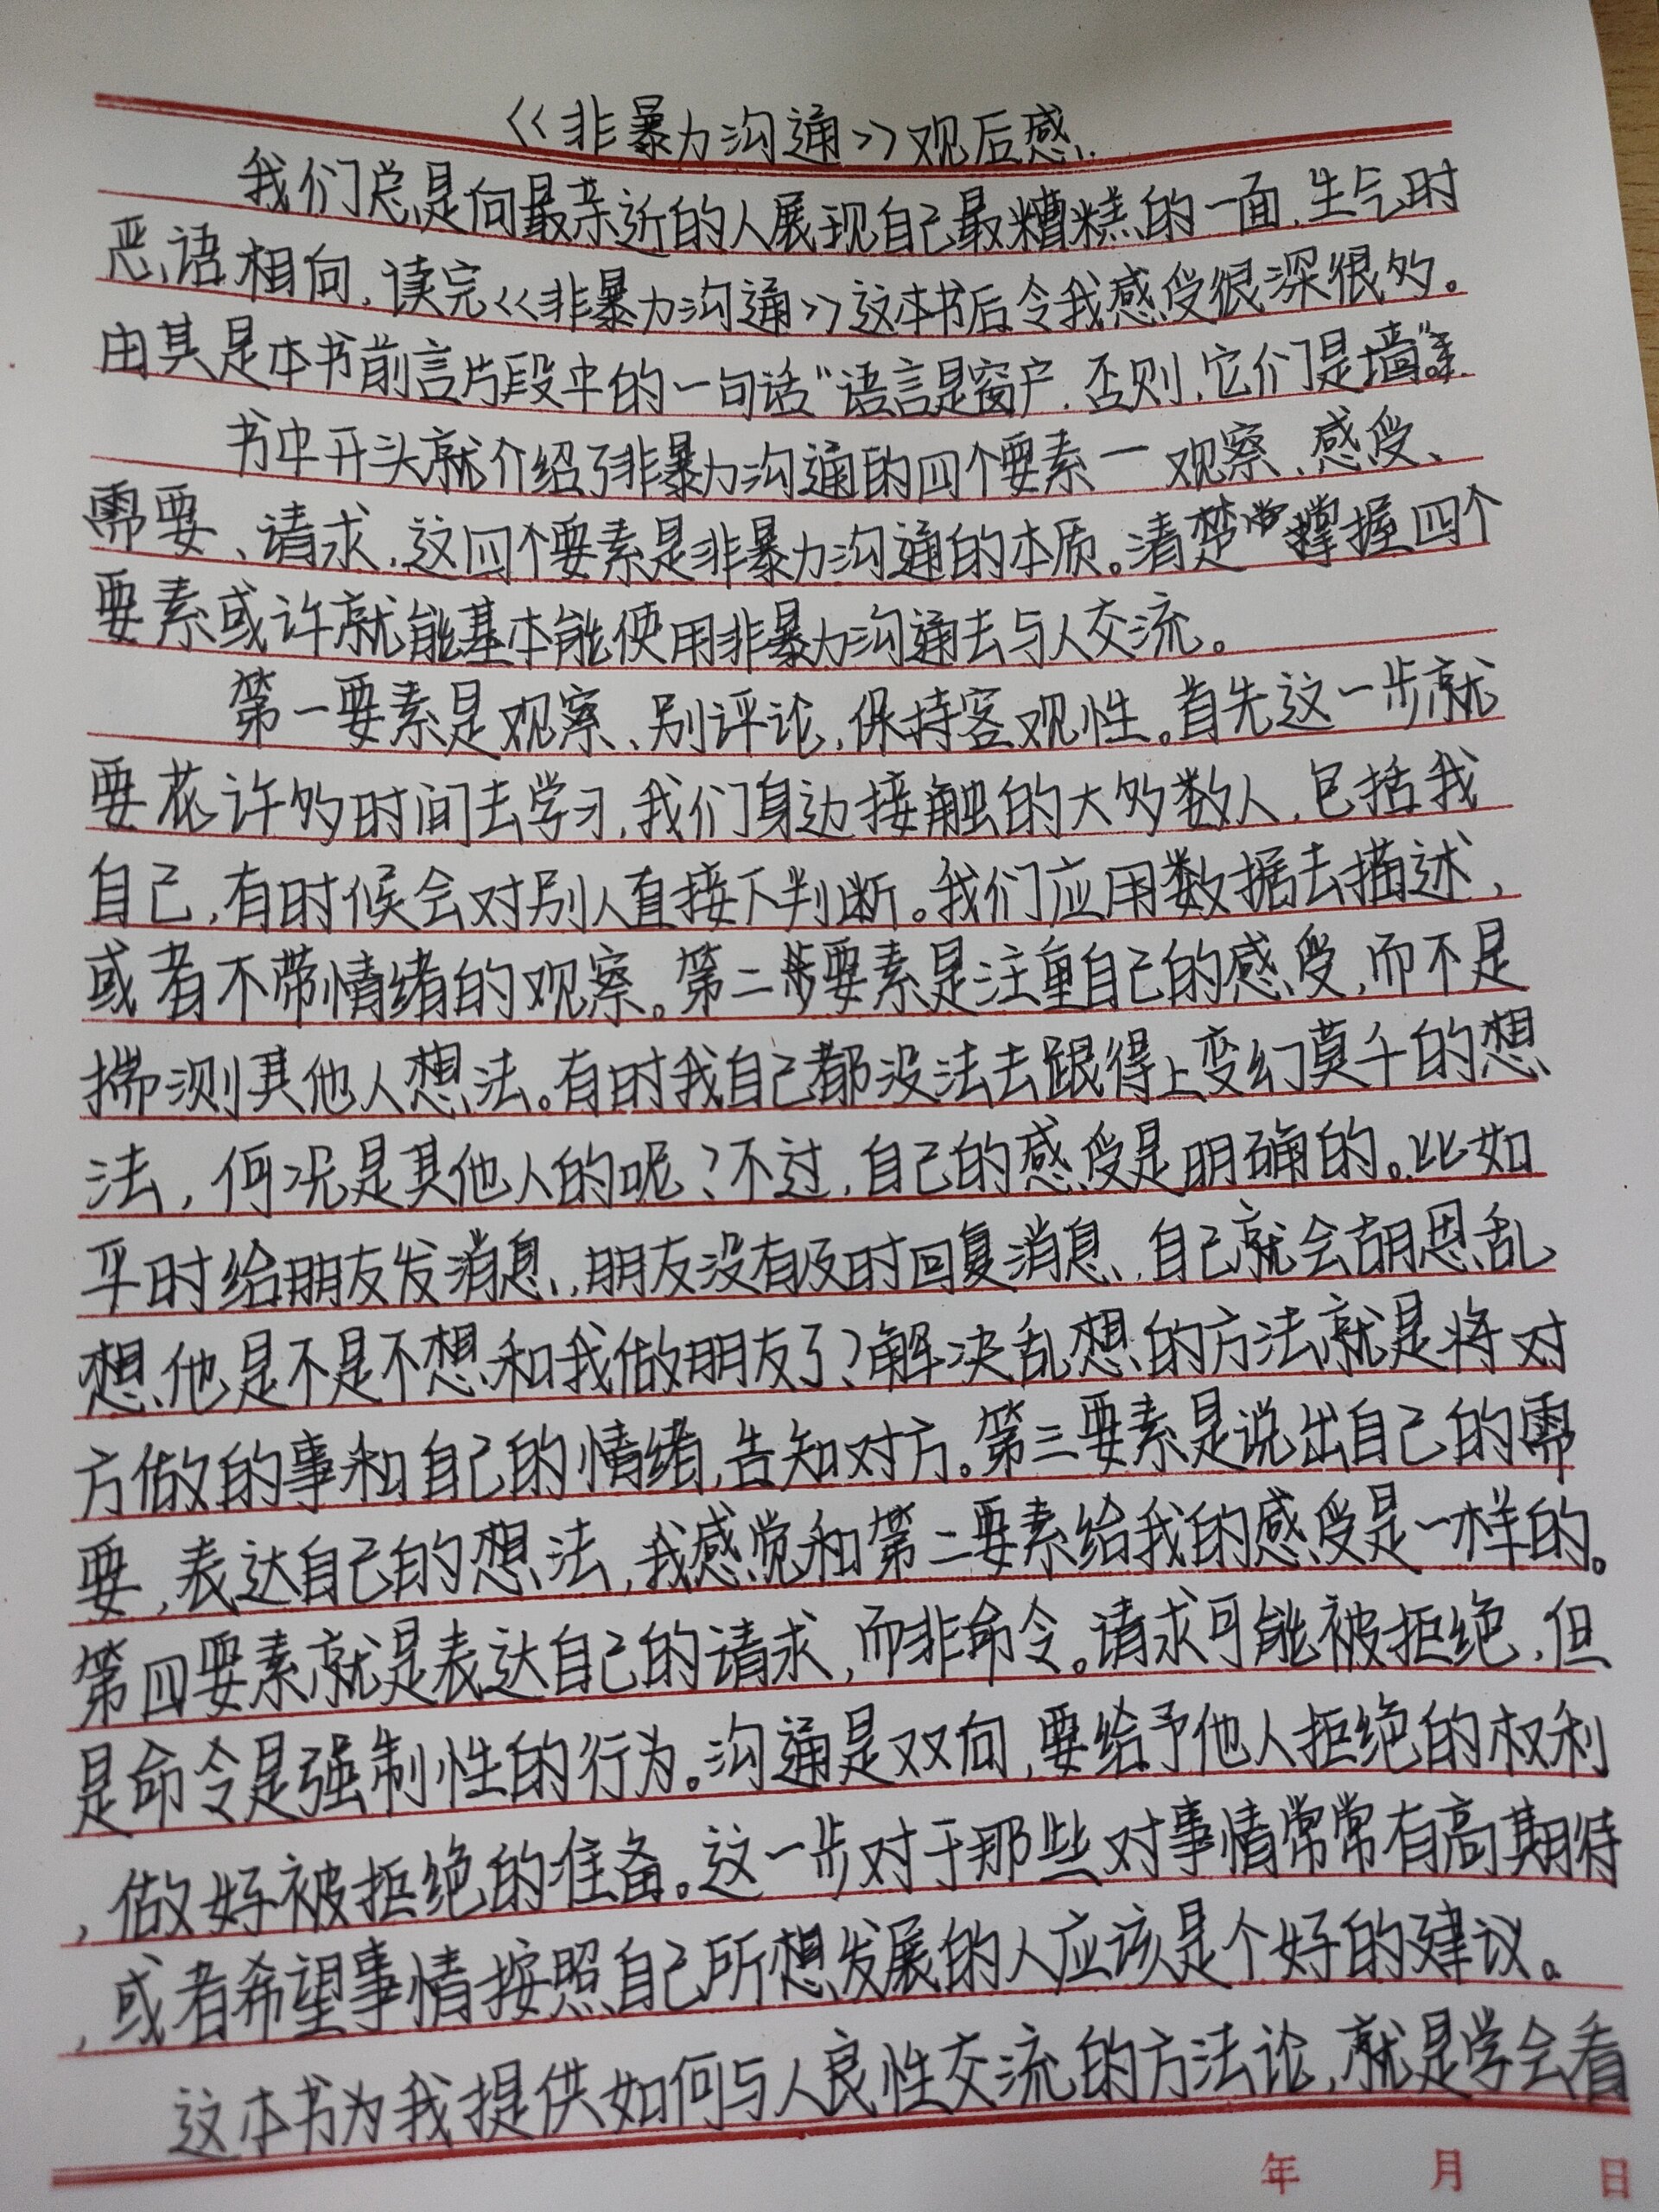 《非暴力沟通》观后感.
我们总是向最亲近的人展现自己最糟糕的一面,生气时
恶语相向,读完《非暴力沟通》这本书后令我感受很深很多。
由其是本书前言片段中的一句话"语言是窗户,否则,它们是墙"。
书中开头就介绍了非暴力沟通的四个要素一观察、感受、
需要、请求,这四个要素是非暴力沟通的本质。清楚掌握四个
要素或许就能基本能使用非暴力沟通去与人交流。
第一要素是观察、别评论,保持客观性。首先这一步就
要花许多时间去学习,我们身边接触的大多数人,包括我
自己,有时候会对别人直接下判断。我们应用数据去描述,
或者不带情绪的观察。第二要素是注重自己的感受,而不是
揣测其他人想法。有时我自己都没法去跟得上变幻莫千的想
法,何况是其他人的呢?不过,自己的感受是明确的。比如
平时给朋友发消息,朋友没有及时回复消息,自己就会胡思乱
想,他是不是不想和我做朋友了?解决乱想的方法就是将对
方做的事和自己的情绪,告知对方。第三要素是说出自己的需
要,表达自己的想法,我感觉和第二要素给我的感受是一样的。
第四要素就是表达自己的请求,而非命令。请求可能被拒绝,但
是命令是强制性的行为。沟通是双向,要给予他人拒绝的权利
,做好被拒绝的准备。这一步对于那些对事情常常有高期待
,或者希望事情按照自己所想发展的人应该是个好的建议。
这本书为我提供如何与人良性交流的方法论,就是学会看
年 月 日